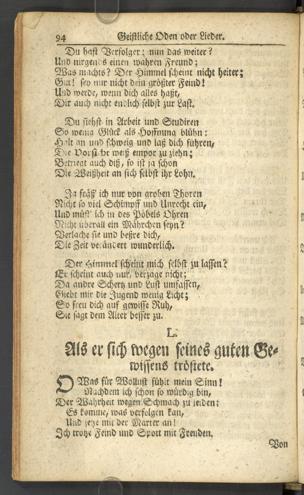 94 Geistliche Oden oder Lieder.
Du hast Verfolger; nun das weiter?
Und nirgends einen wahren Freund;
Was machts? Der Himmel scheint nicht heiter;
Gut! sey nur nicht dein größter Feind!
Und werde, wenn dich alles haßt,
Dir auch nicht endlich selbst zur Last.
Du siehst in Arbeit und Studiren
So wenig Glück als Hoffnung blühn:
Halt an und schweig und laß dich führen,
Die Vorsicht weiß empor zu ziehn;
Betreut auch diß, so ist ja schon
Die Weißheit an sich selbst ihr Lohn.
Ja fräß' ich nur von groben Thoren
Nicht so viel Schimpff und Unrecht ein,
Und müst' ich in des Pöbels Ohren
Nicht überall ein Mährchen seyn?
Verlache sie und beßre dich,
Die Zeit verändert wunderlich.
Der Himmel scheint mich selbst zu lassen?
Er scheint auch nur, verzage nicht;
Da andre Schertz und Lust umfassen,
Giebt mir die Jugend wenig Licht;
So freu dich auf gewisse Ruh,
Sie sagt dem Alter besser zu.
L.
Als er sich wegen seines guten Ge-
wissens tröstete.
O Was für Wollust fühlt mein Sinn!
Nachdem ich schon so würdig bin,
Der Wahrheit wegen Schmach zu leiden:
Es komme, was verfolgen kan,
Und setze mit der Marter an!
Ich trotze Feind und Spott mit Freuden.
Von